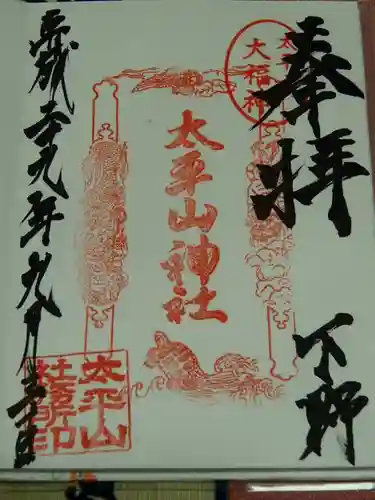 奉拝
下野
大福神
太平山神社
太平山
社務所印
平成二十九年九月